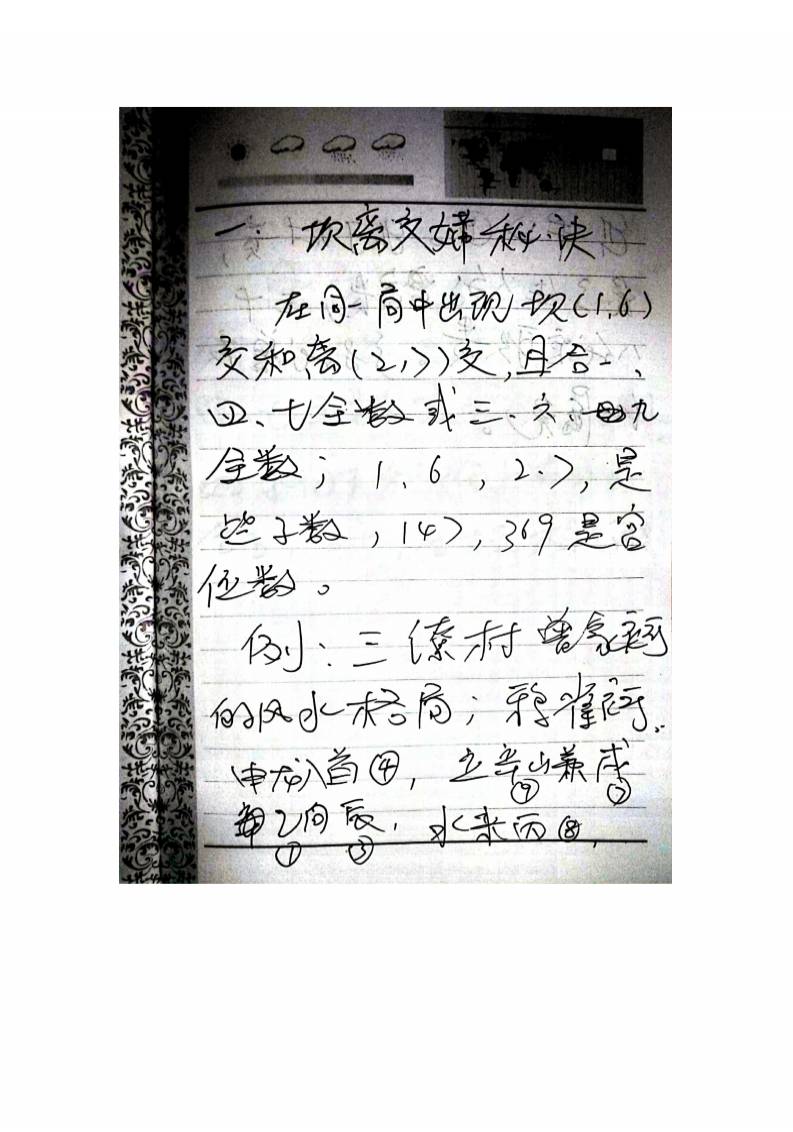 一. 坎离交媾秘诀
在同一局中出现坎(1.6)
交和离(2,7)交,且合一、
四、七全数或三.六.九
全数; 1、6 , 2.7, 是
些子数, 147, 369 是宫
位数。
例: 三僚村曾家祠
的风水格局;
申龙入首④, 立辛山兼戌
⑨ ⑦
乙向辰, 水来丙⑧,
① ③